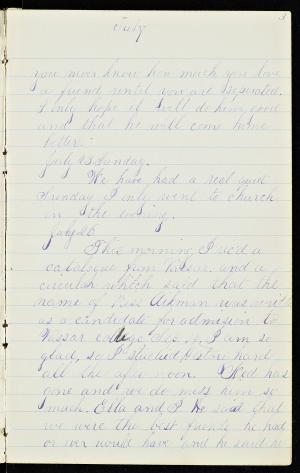 July
you never know how much you love
a friend until you are separated.
I only hope it will do him good
and that he will come home
better.
July 23 Sunday.
We have had a real quiet
Sunday I only went to church
in the evening.
July 26
This morning I rec'd a
catalogue from Vassar and a
circular which said that the
name of Miss was
as a candidate for admision to
Vassar college Oh I am so
glad, so I studied History hard
all the afternoon. has
gone and we do miss him so
much. Ella and I. He said that
we were the best friends he had
or ever would have and he said he